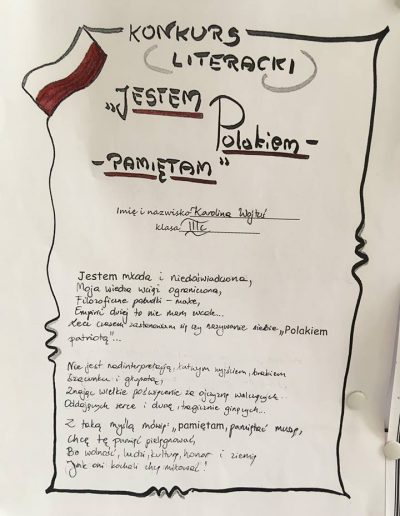 KONKURS
LITERACKI
„JESTEM
Polakiem –
– PAMIĘTAM"
Imię i nazwisko Karolina Wojtuś
klasa IIIc
Jestem młoda i niedoświadczona,
Moja wiedza wciąż ograniczona,
Filozoficzne pobudki – małe,
Empirii dziej to nie mam wcale...
Lecz czasem zastanawiam się czy nazywanie siebie „Polakiem
patriotą"...
Nie jest nadinterpretacją, łatwym wyjściem, brakiem
Szacunku i głupotą,
Znając wielkie poświęcenie za ojczyznę walczących...
Oddających serce i duszę, tragicznie ginących...
Z taką myślą mówię: „pamiętam, pamiętać muszę,
Chcę tę pamięć pielęgnować,
Bo wolność, ludzi, kulturę, honor i ziemię
Jak oni kochali chcę miłować!